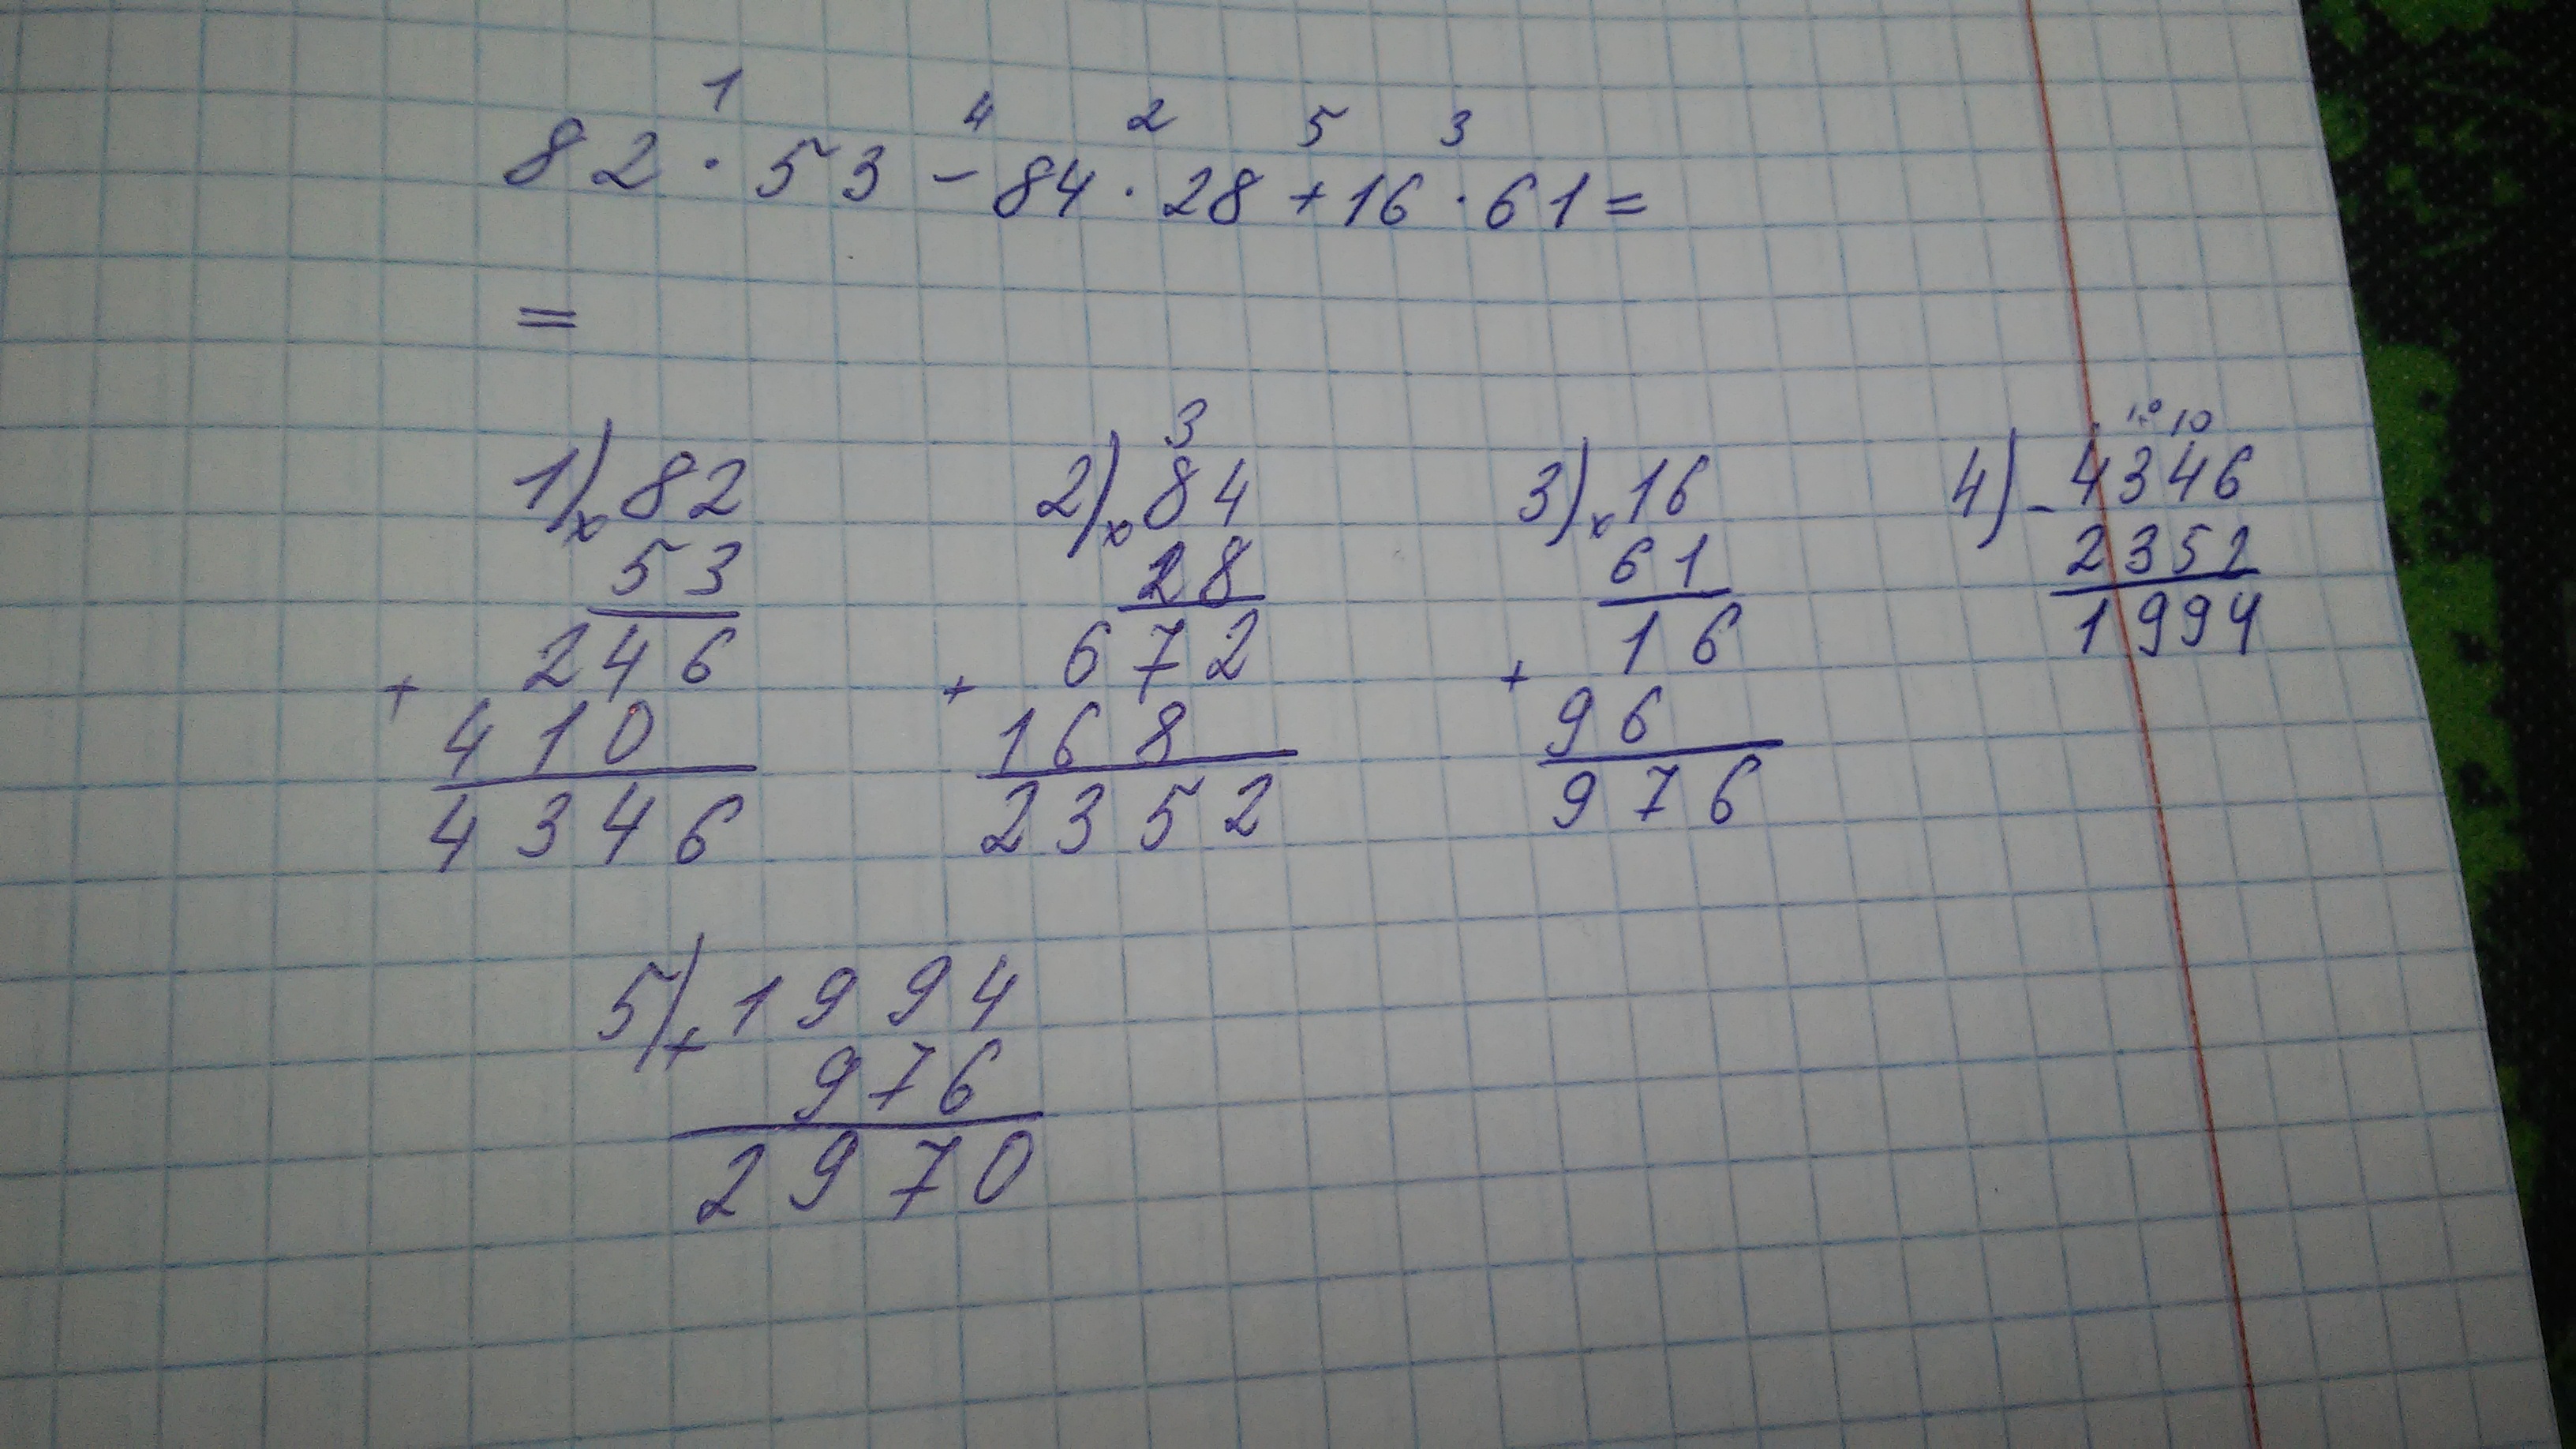 1 4 2 5 3
82 · 53 - 84 · 28 + 16 · 61 =
=
3 10 10
1) x 82 2) x 84 3) x 16 4) - 4346
53 28 61 2352
246 672 16 1994
+ + +
410 168 96
4346 2352 976
5) + 1994
976
2970